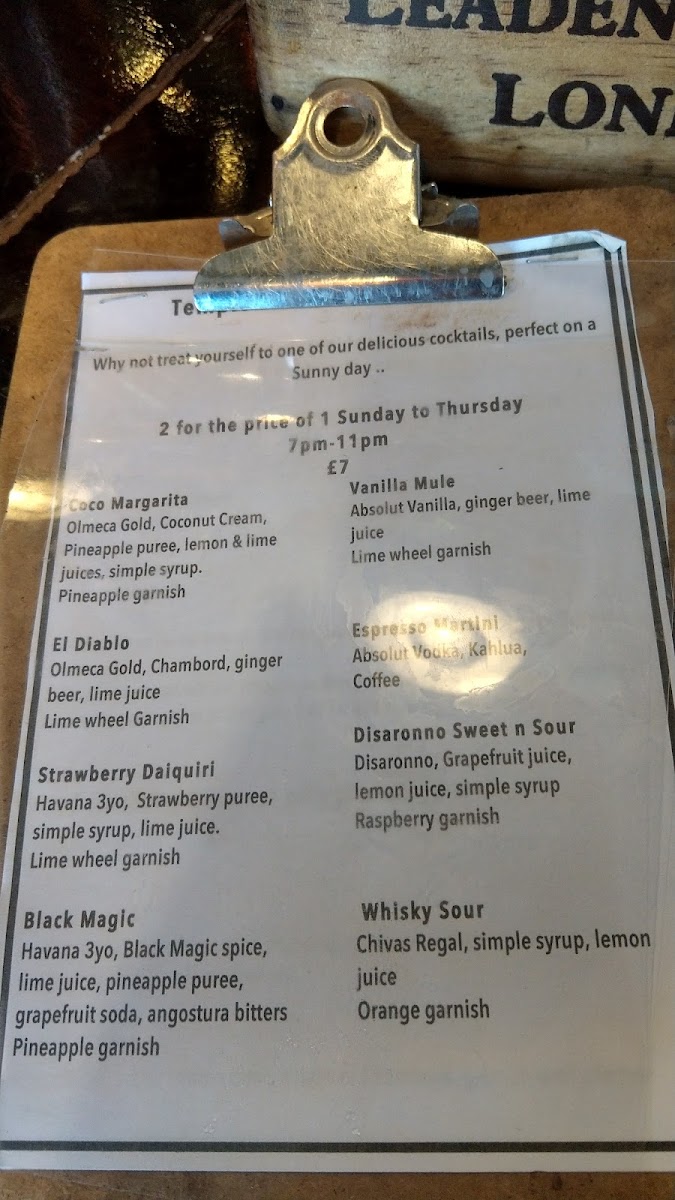 LEADEN
LON
Why not treat yourself to one of our delicious cocktails, perfect on a
Sunny day ..
2 for the price of 1 Sunday to Thursday
7pm-11pm
£7
Coco Margarita
Olmeca Gold, Coconut Cream,
Pineapple puree, lemon & lime
juices, simple syrup.
Pineapple garnish
El Diablo
Olmeca Gold, Chambord, ginger
beer, lime juice
Lime wheel Garnish
Strawberry Daiquiri
Havana 3yo, Strawberry puree,
simple syrup, lime juice.
Lime wheel garnish
Black Magic
Havana 3yo, Black Magic spice,
lime juice, pineapple puree,
grapefruit soda, angostura bitters
Pineapple garnish
Vanilla Mule
Absolut Vanilla, ginger beer, lime
juice
Lime wheel garnish
Espresso Martini
Absolut Vodka, Kahlua,
Coffee
Disaronno Sweet n Sour
Disaronno, Grapefruit juice,
lemon juice, simple syrup
Raspberry garnish
Whisky Sour
Chivas Regal, simple syrup, lemon
juice
Orange garnish